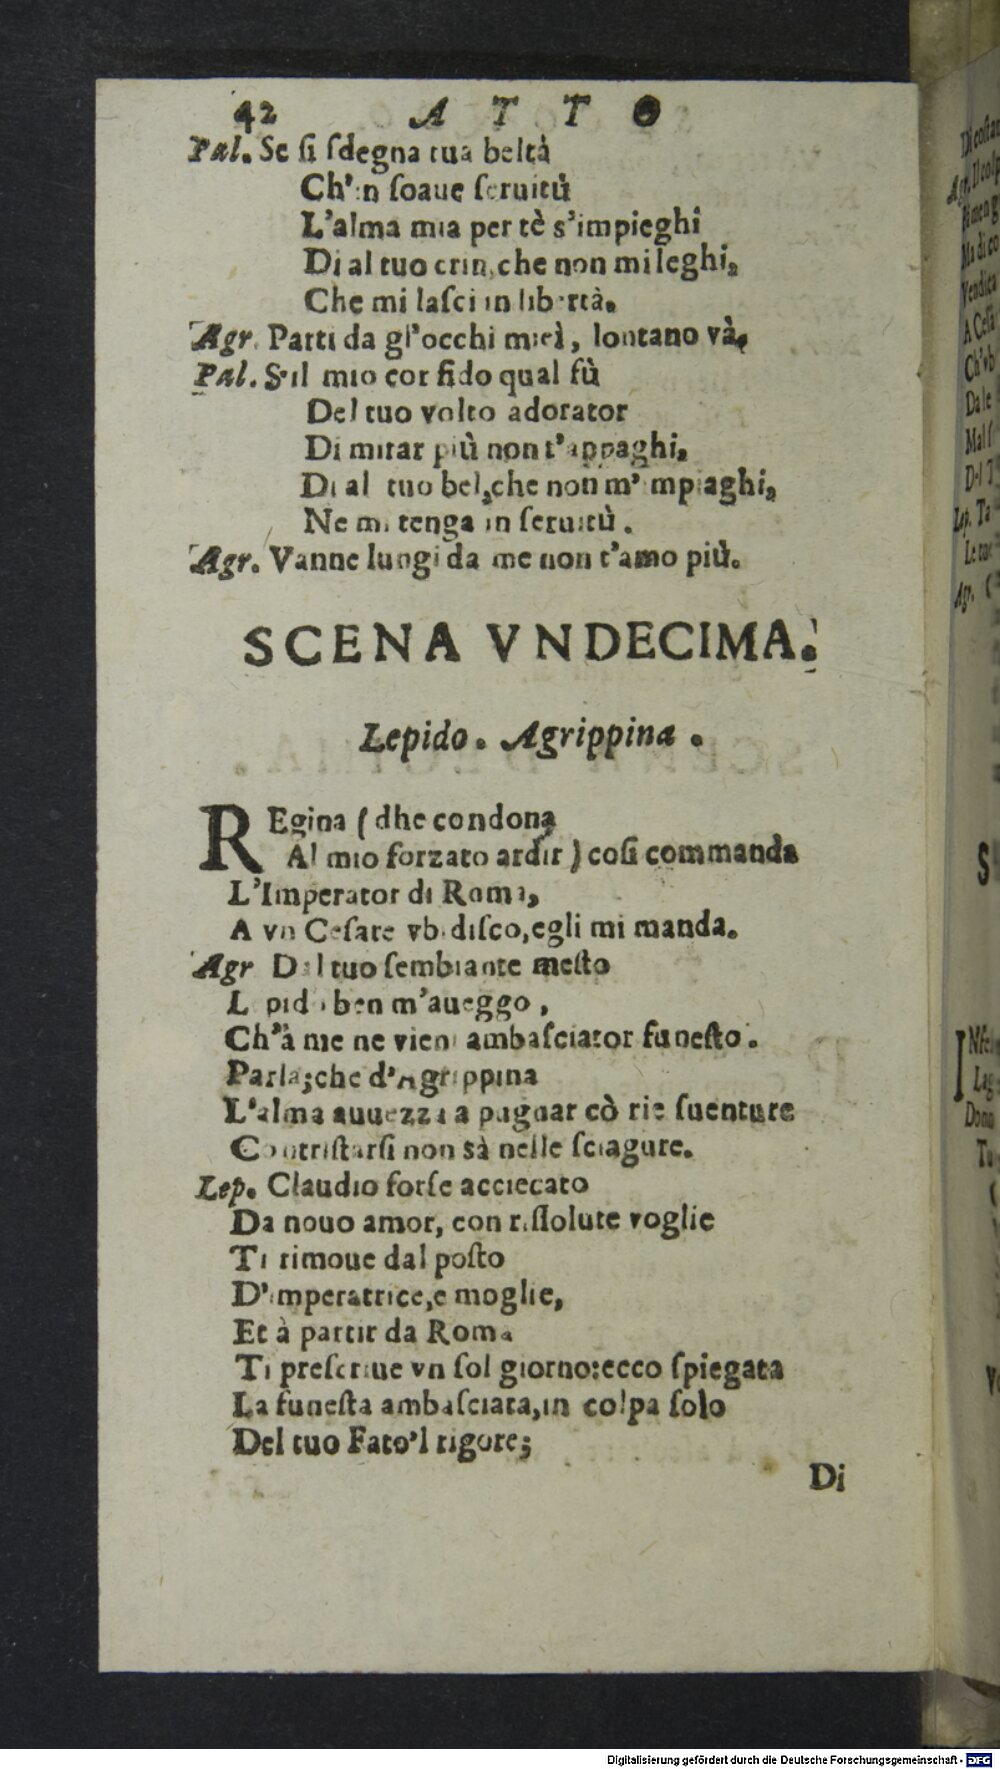 42 ATTO
Pal. Se si sdegna tua beltà
Ch'in soaue seruitù
L'alma mia per tè s'impieghi
Di al tuo crin, che non mi leghi,
Che mi lasci in libertà.
Agr. Parti da gl'occhi miei, lontano và,
Pal. S'il mio cor fido qual fù
Del tuo volto adorator
Di mirar più non t'appaghi,
Di al tuo bel, che non m'impiaghi,
Ne mi tenga in seruitù.
Agr. Vanne lungi da me non t'amo più.
SCENA VNDECIMA.
Lepido. Agrippina.
REgina (dhe condona
Al mio forzato ardir) cosi commanda
L'Imperator di Roma,
A vn Cesare vbidisco, egli mi manda.
Agr Dal tuo sembiante mesto
Lepido ben m'aueggo,
Ch'à me ne vieni ambasciator funesto.
Parla; che d'Agrippina
L'alma auuezza a pugnar cò rie suenture
Contristarsi non sà nelle sciagure.
Lep. Claudio forse acciecato
Da nouo amor, con rissolute voglie
Ti rimoue dal posto
D'imperatrice, e moglie,
Et à partir da Roma
Ti prescriue vn sol giorno: ecco spiegata
La funesta ambasciata, in colpa solo
Del tuo Fato'l rigore;
Di
Digitalisierung gefördert durch die Deutsche Forschungsgemeinschaft - DFG